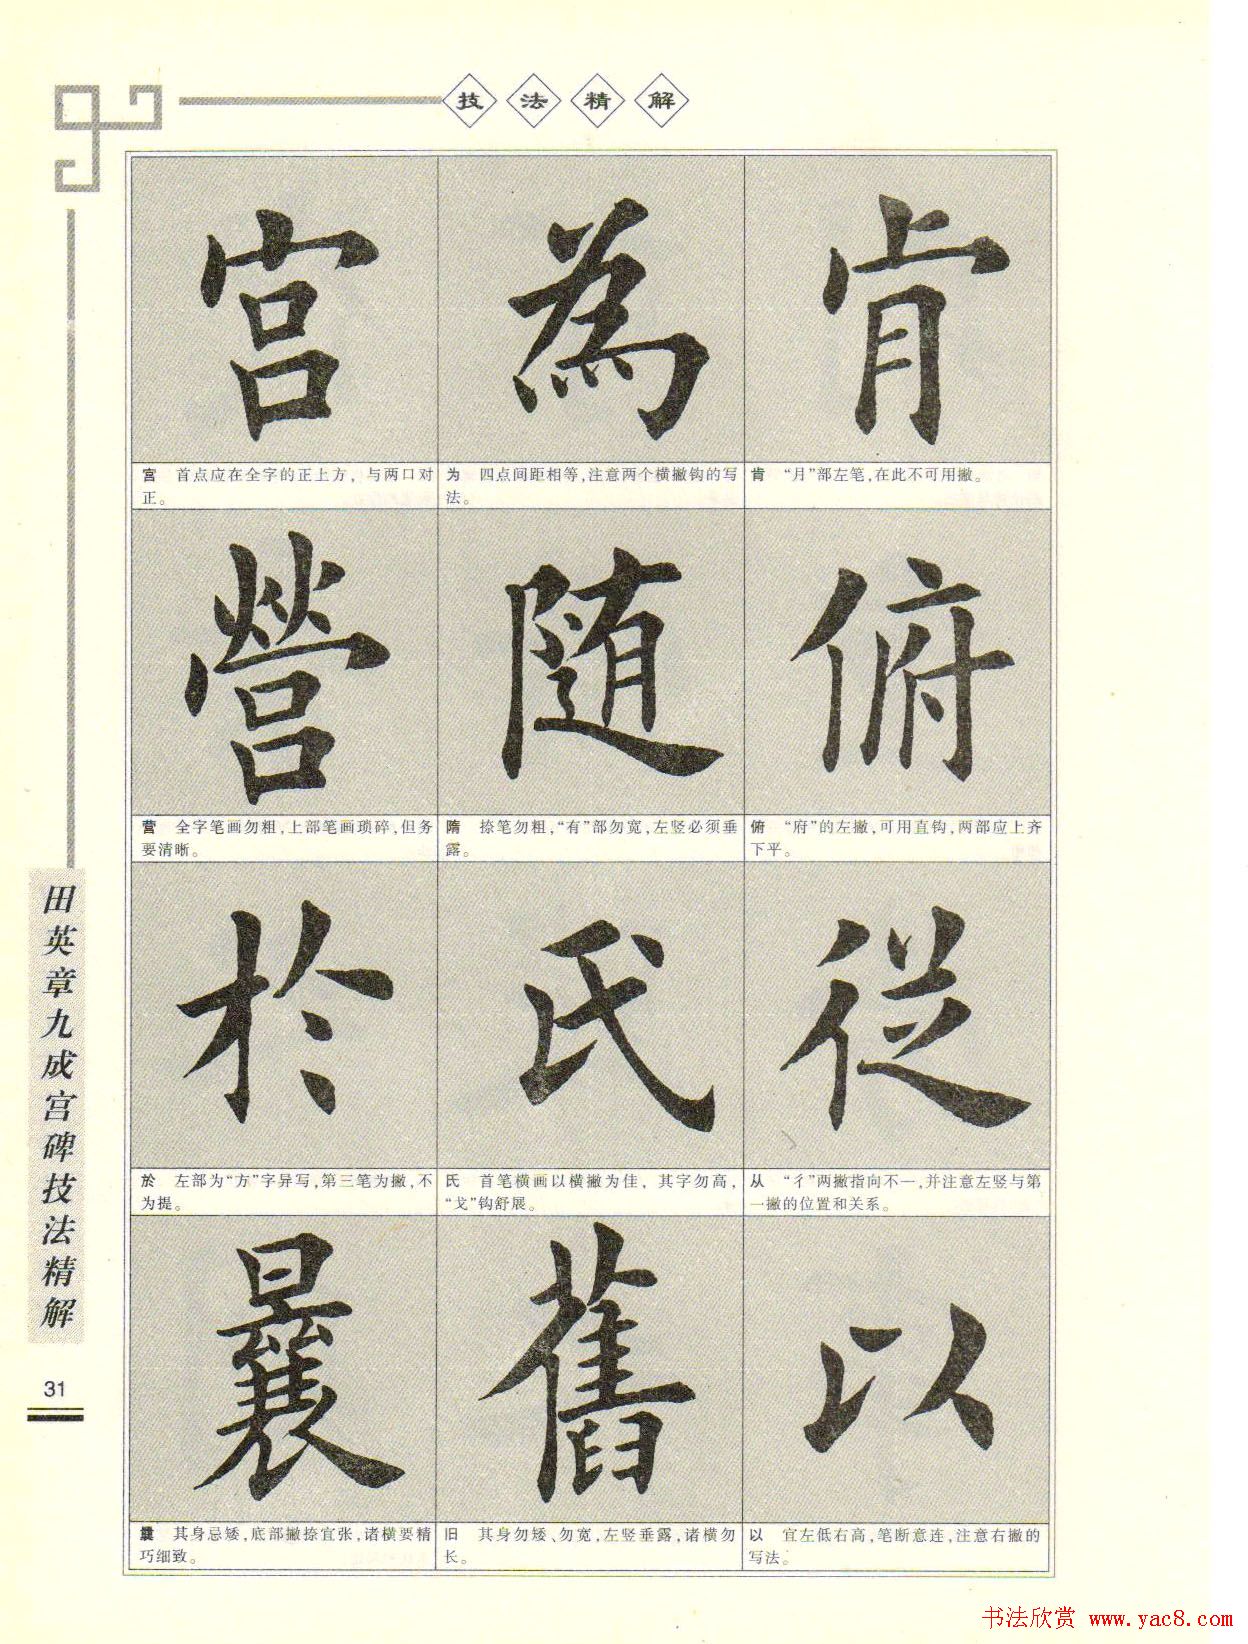 技法精解
宫 為 肯
宫 首点应在全字的正上方，与两口对
正。
为 四点间距相等，注意两个横撇钩的写
法。
肯 “月”部左笔，在此不可用撇。
營 随 俯
营 全字笔画勿粗，上部笔画琐碎，但务
要清晰。
隋 捺笔勿粗，“有”部勿宽，左竖必须垂
露。
俯 “府”的左撇，可用直钩，两部应上齐
下平。
於 氏 従
於 左部为“方”字异写，第三笔为撇，不
为提。
氏 首笔横画以横撇为佳，其字勿高，
“戈”钩舒展。
从 “彳”两撇指向不一，并注意左竖与第
一撇的位置和关系。
曩 舊 以
曩 其身忌矮，底部撇捺宜张，诸横要精
巧细致。
旧 其身勿矮、勿宽，左竖垂露，诸横勿
长。
以 宜左低右高，笔断意连，注意右撇的
写法。
田英章九成宫碑技法精解
31
书法欣赏 www.yac8.com